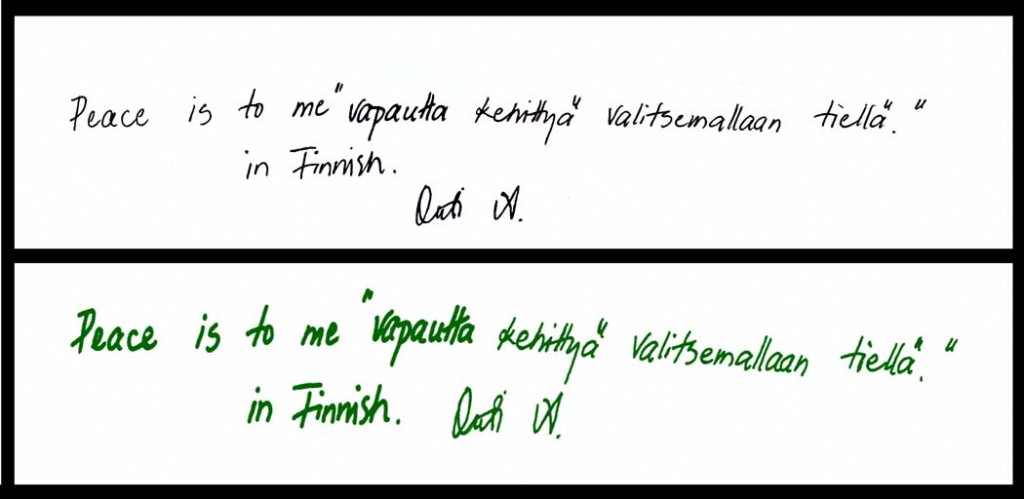 Peace is to me "vapautta kehittyä valitsemallaan tiellä."
in Finnish.
Outi A.
Peace is to me "vapautta kehittyä valitsemallaan tiellä."
in Finnish. Outi A.